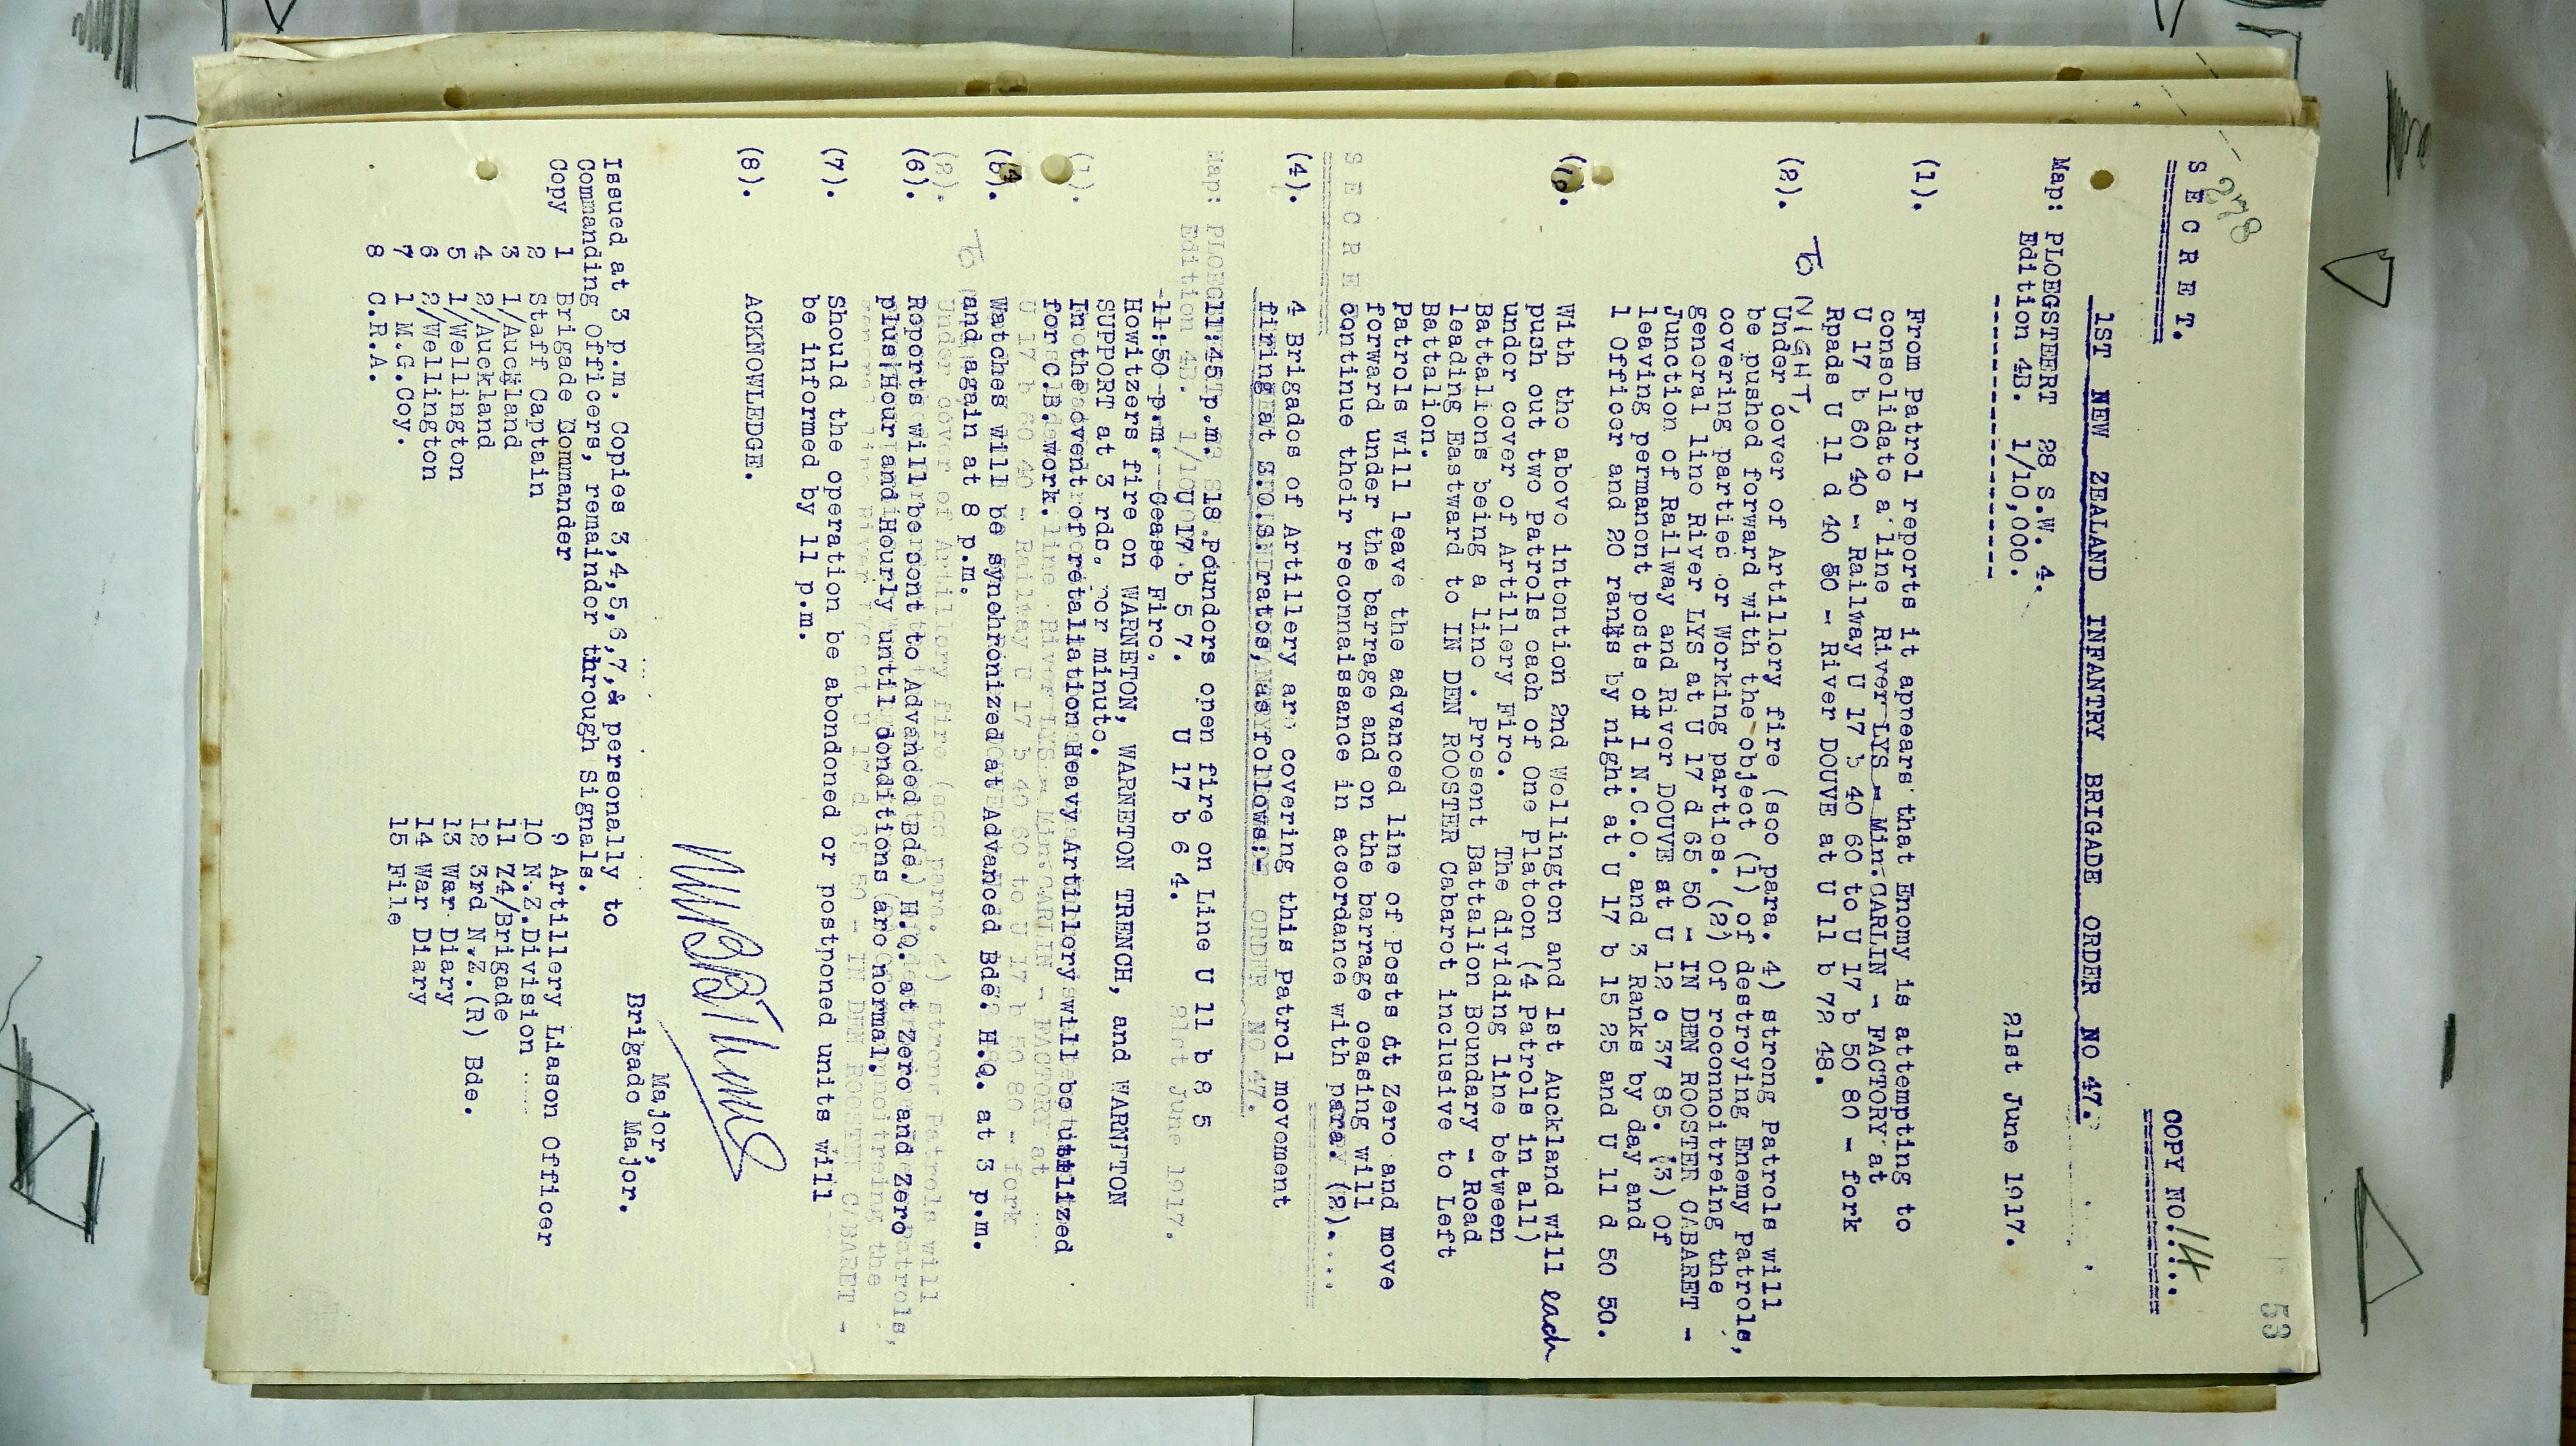 278
53
S E C R E T.
COPY NO.14...
1ST NEW ZEALAND INFANTRY BRIGADE ORDER NO 47.
Map: PLOEGSTEERT 28 S.W. 4.
Edition 4B. 1/10,000.
21st June 1917.
(1). From Patrol reports it appears that Enemy is attempting to
consolidate a line River LYS - Min.CARLIN - FACTORY at
U 17 b 60 40 - Railway U 17 b 40 60 to U 17 b 50 80 - fork
Rpads U 11 d 40 50 - River DOUVE at U 11 b 72 48.
TO NIGHT,
(2). Under cover of Artillory fire (soo para. 4) strong Patrols will
be pushed forward with the object (1) of destroying Enemy Patrols,
covering partied or Working parties. (2) Of reconnoitreing the
general line River LYS at U 17 d 65 50 - IN DEN ROOSTER CABARET -
Junction of Railway and River DOUVE at U 12 c 37 85. (3) Of
leaving permanent posts of 1 N.C.O. and 3 Ranks by day and
1 Officer and 20 ranks by night at U 17 b 15 25 and U 11 d 50 50.
With the above intention 2nd Wellington and 1st Auckland will each
push out two Patrols each of One Platoon (4 Patrols in all)
under cover of Artillery Fire. The dividing line between
Battalions being a line . Present Battalion Boundary - Road
leading Eastward to IN DEN ROOSTER Cabaret inclusive to Left
Battalion.
Patrols will leave the advanced line of Posts at Zero and move
forward under the barrage and on the barrage ceasing will
continue their reconnaissance in accordance with para. (2).
S E C R E
(4). 4 Brigades of Artillery are covering this Patrol movement
firing at S.O.S. rates, as follows:-
ORDER NO 47.
11:45 p.m. 18 pounders open fire on Line U 11 b 8 5
U 17 b 5 7. U 17 b 6 4.
21st June 1917.
11:50 p.m. Cease Fire.
Howitzers fire on WARNETON, WARNETON TRENCH, and WARNETON
SUPPORT at 3 rds. per minute.
(1). In the event of retaliation Heavy Artillery will be utilized
for C.B. work.
(5). Watches will be synchronized at Advanced Bde. H.Q. at 3 p.m.
and again at 8 p.m.
(2). TO
(6). Reports will be sent to Advanced Bde. H.Q. at Zero and Zero
plus Hour and Hourly until conditions are normal.
(7). Should the operation be abondoned or postponed units will
be informed by 11 p.m.
(8). ACKNOWLEDGE.
Major,
Brigade Major.
Issued at 3 p.m. Copies 3,4,5,6,7,& personally to
Commanding Officers, remainder through Signals.
Copy 1 Brigade Commander
2 Staff Captain
3 1/Auckland
4 2/Auckland
5 1/Wellington
6 2/Wellington
7 1 M.G.Coy.
8 C.R.A.
9 Artillery Liason Officer
10 N.Z.Division
11 Z4/Brigade
12 3rd N.Z.(R) Bde.
13 War Diary
14 War Diary
15 File